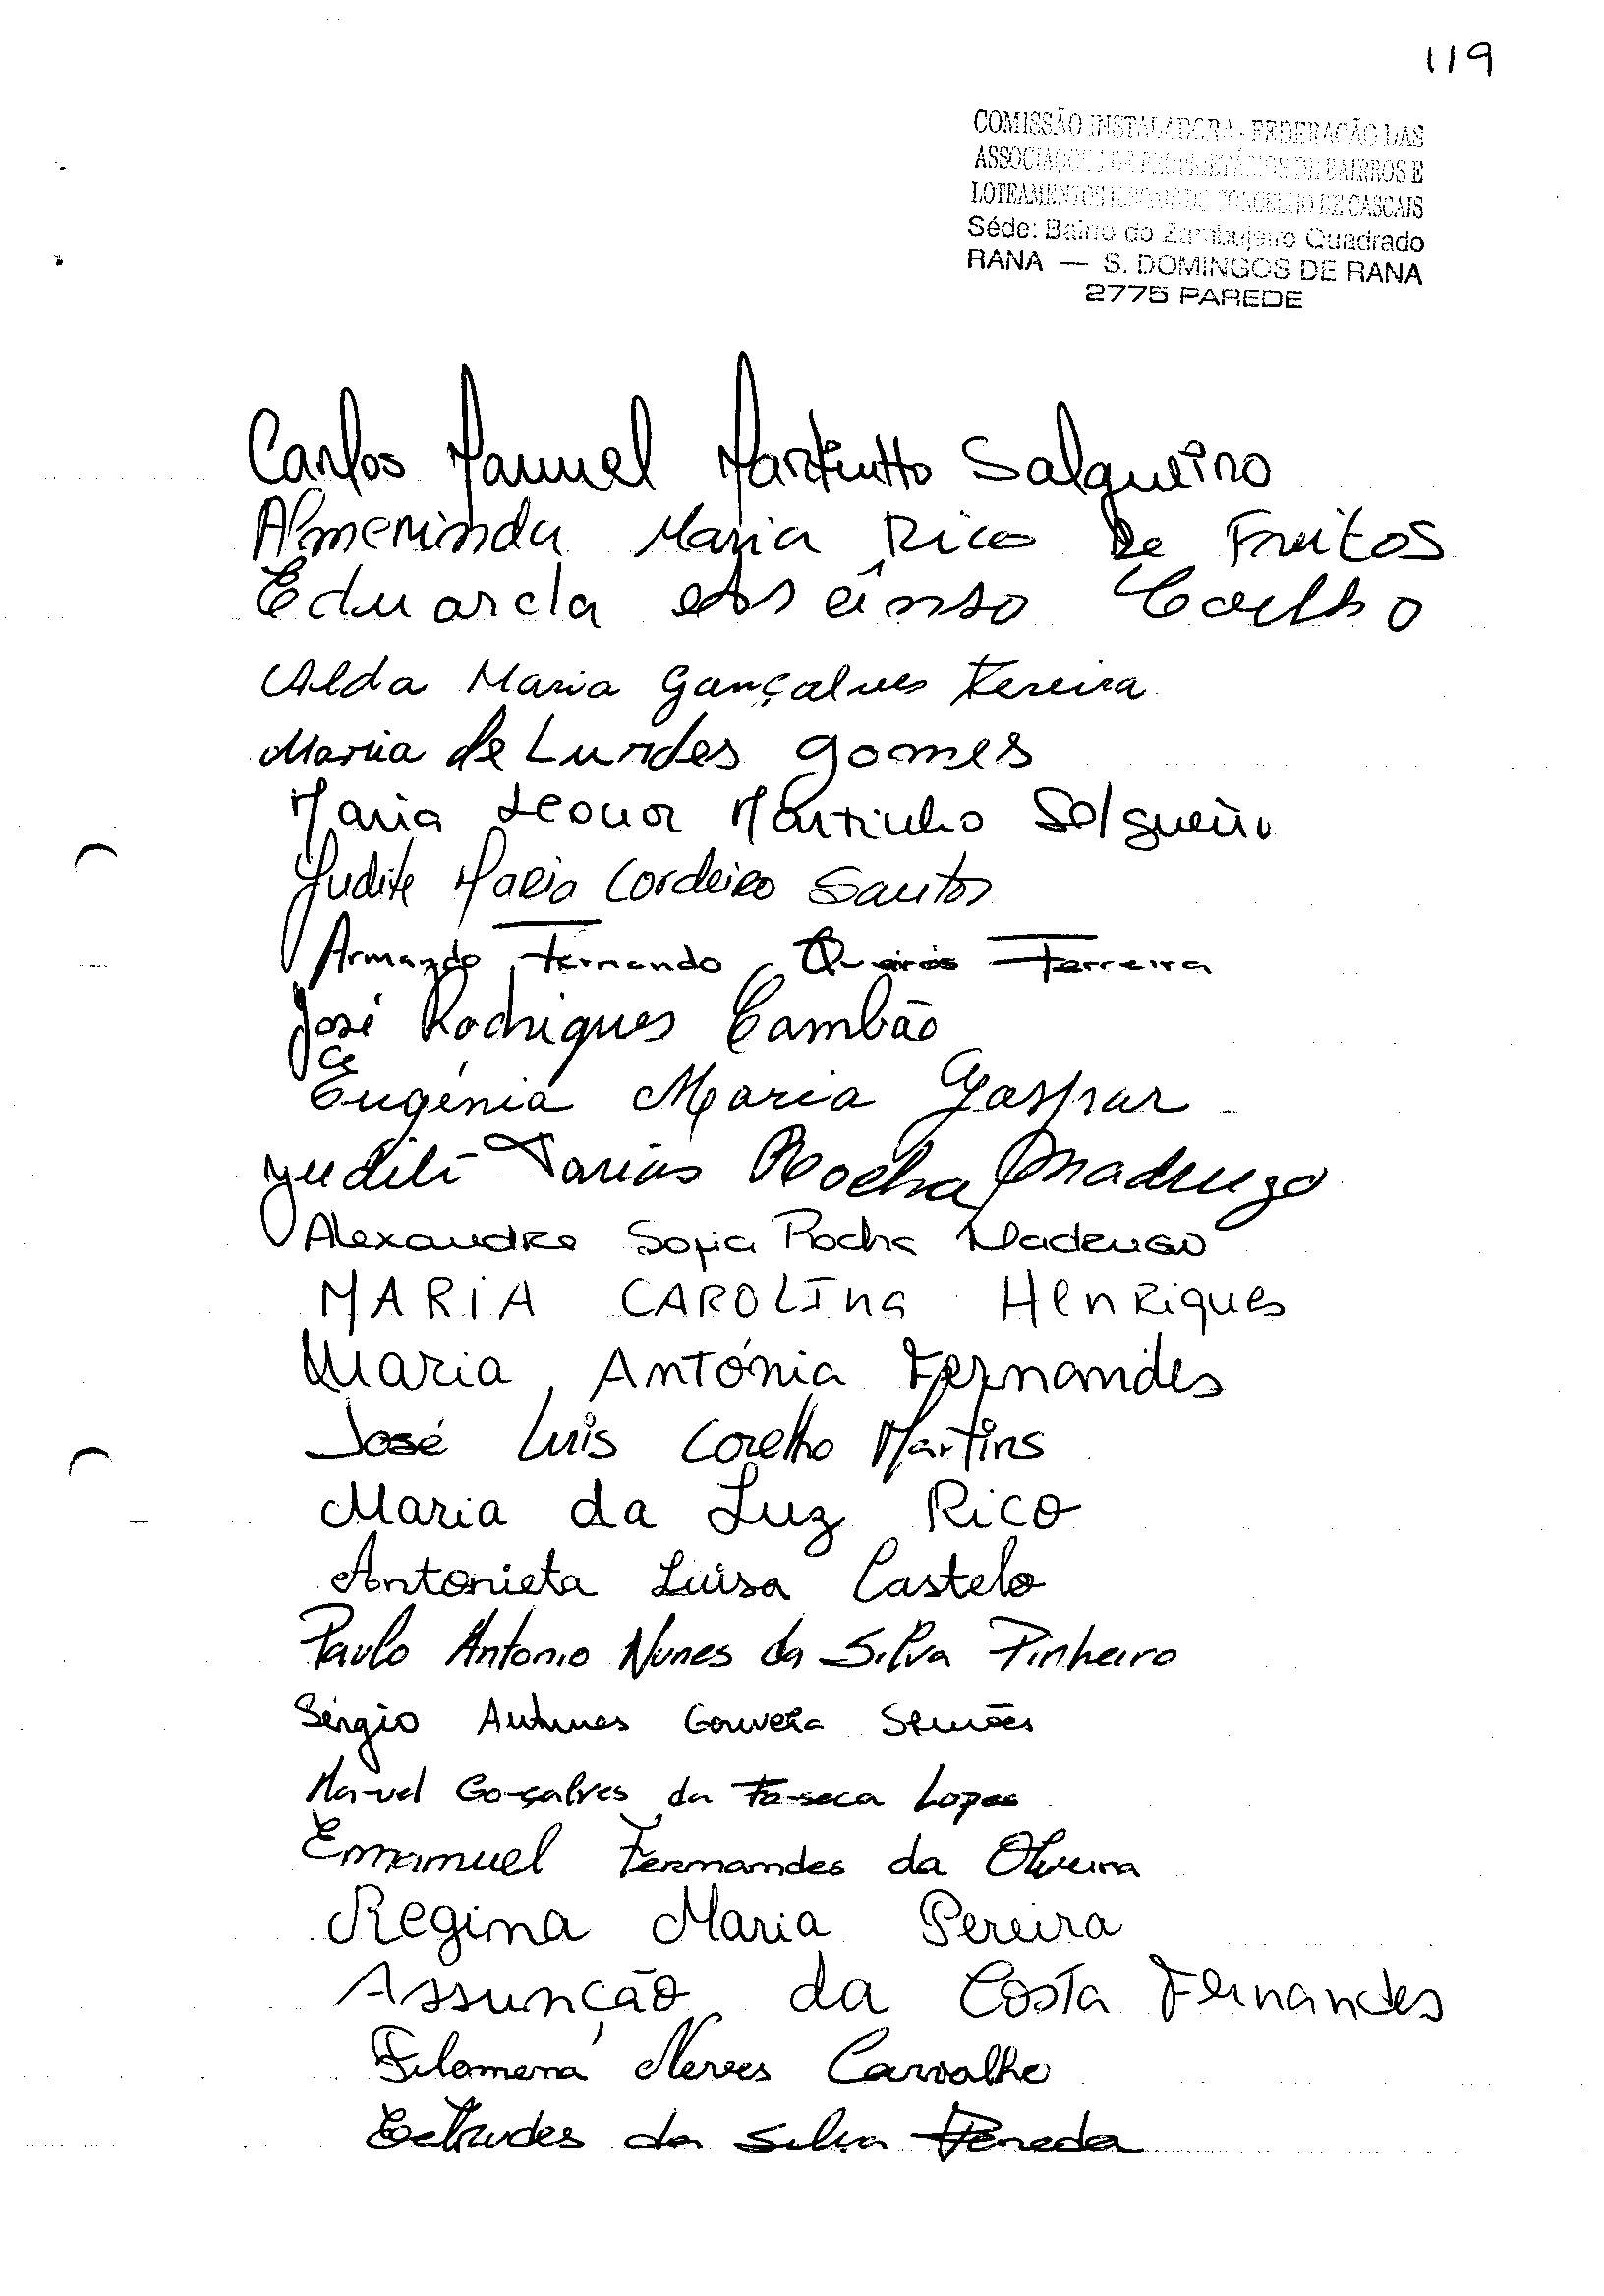 119
COMISSÃO INSTALADORA - FEDERAÇÃO DAS
ASSOCIAÇÕES DE PROPRIETÁRIOS DE BAIRROS E
LOTEAMENTOS DO CONCELHO DE CASCAIS
Séde: Bairro do Zambujeiro Quadrado
RANA — S. DOMINGOS DE RANA
2775 PAREDE
Carlos Manuel Martinho Salgueiro
Almerinda Maria Rico De Freitos
Eduarda Coelho
Alda Maria Gonçalves Pereira
Maria de Lurdes Gomes
Maria Leonor Martinho Salgueiro
Judite Maria Cordeiro Santos
Armando Fernando Queirós Ferreira
José Rodrigues Cambão
Eugénia Maria Gaspar
Judite Rocha Madrugo
Alexandra Sofia Rocha Madrugo
MARIA CAROLINA HenRiques
Maria António Fernandes
José Luis Coelho Martins
Maria da Luz Rico
Antonieta Luisa Castelo
Paulo Antonio Nunes da Silva Pinheiro
Sérgio Antunes Gouveia Simões
Manuel Gonçalves da Fonseca Lopes
Emanuel Fernandes da Oliveira
Regina Maria Pereira
Assunção da Costa Fernandes
Filomena Neves Carvalho
da Silva Peneda